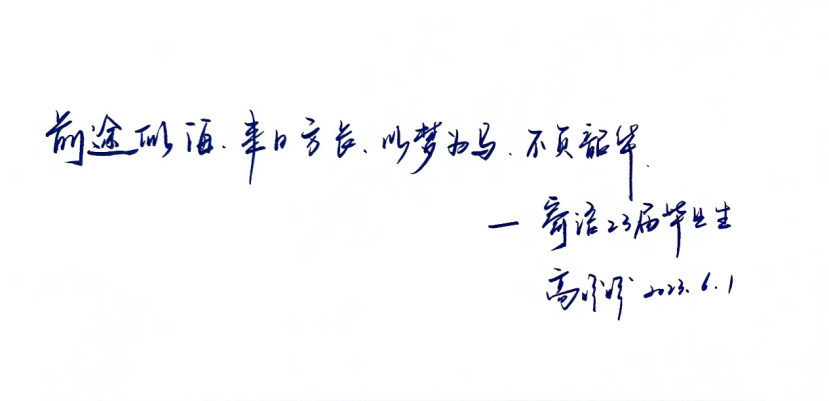 前途似海.来日方长.以梦为马.不负韶华.
— 寄语23届毕业生
高 2023.6.1